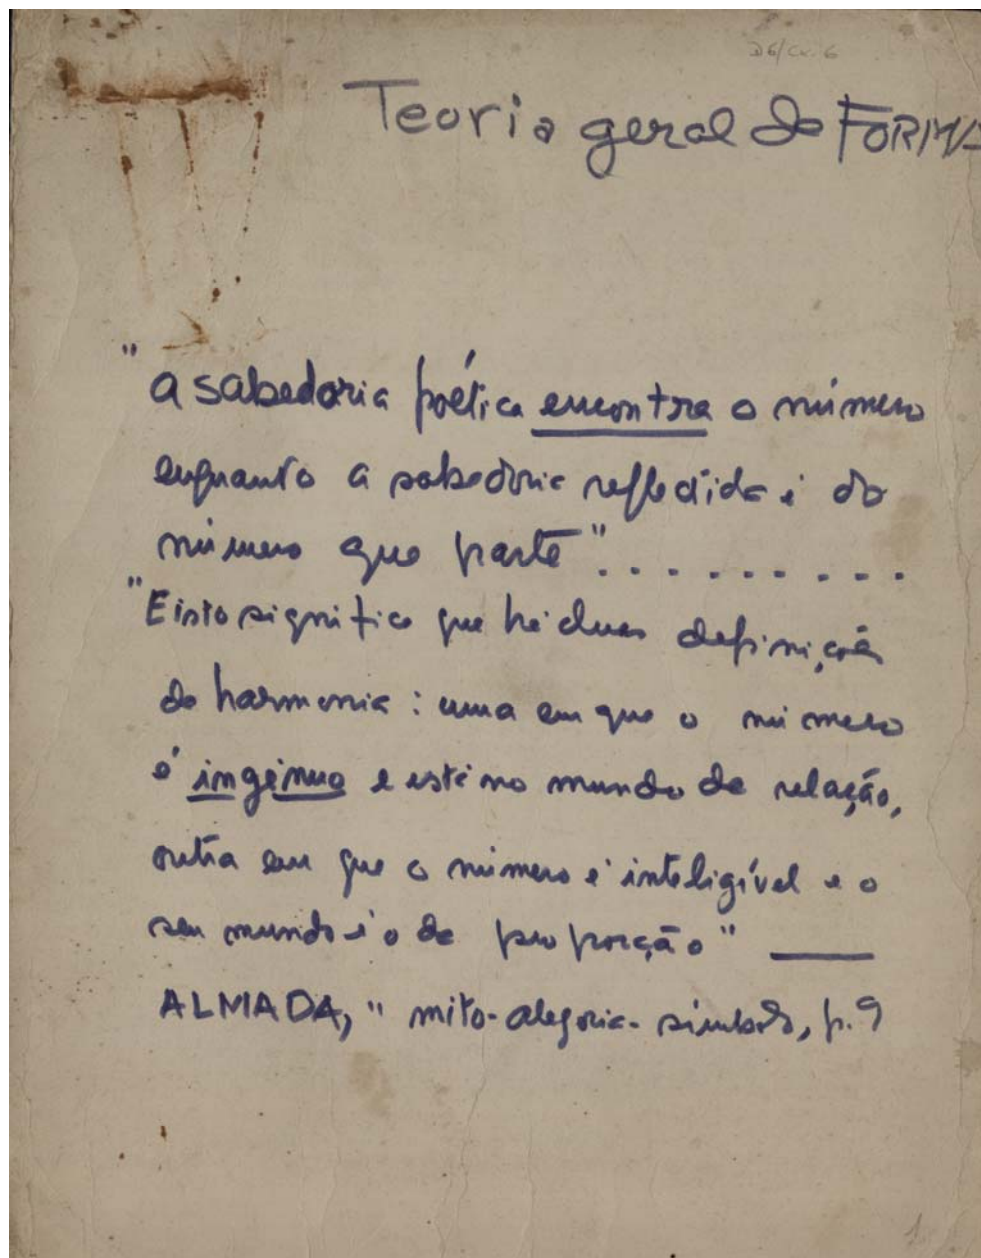 D6/Cx. 6
Teoria geral da FORMA
"a sabedoria poética encontra o número
enquanto a sabedoria reflectida é do
número que parte". . . . . . . . .
"E isto significa que há duas definições
de harmonia: uma em que o número
é ingénuo e está no mundo da relação,
outra em que o número é inteligível e o
seu mundo é o da proporção" ____
ALMADA, " mito-alegoria-símbolo, p. 9
1